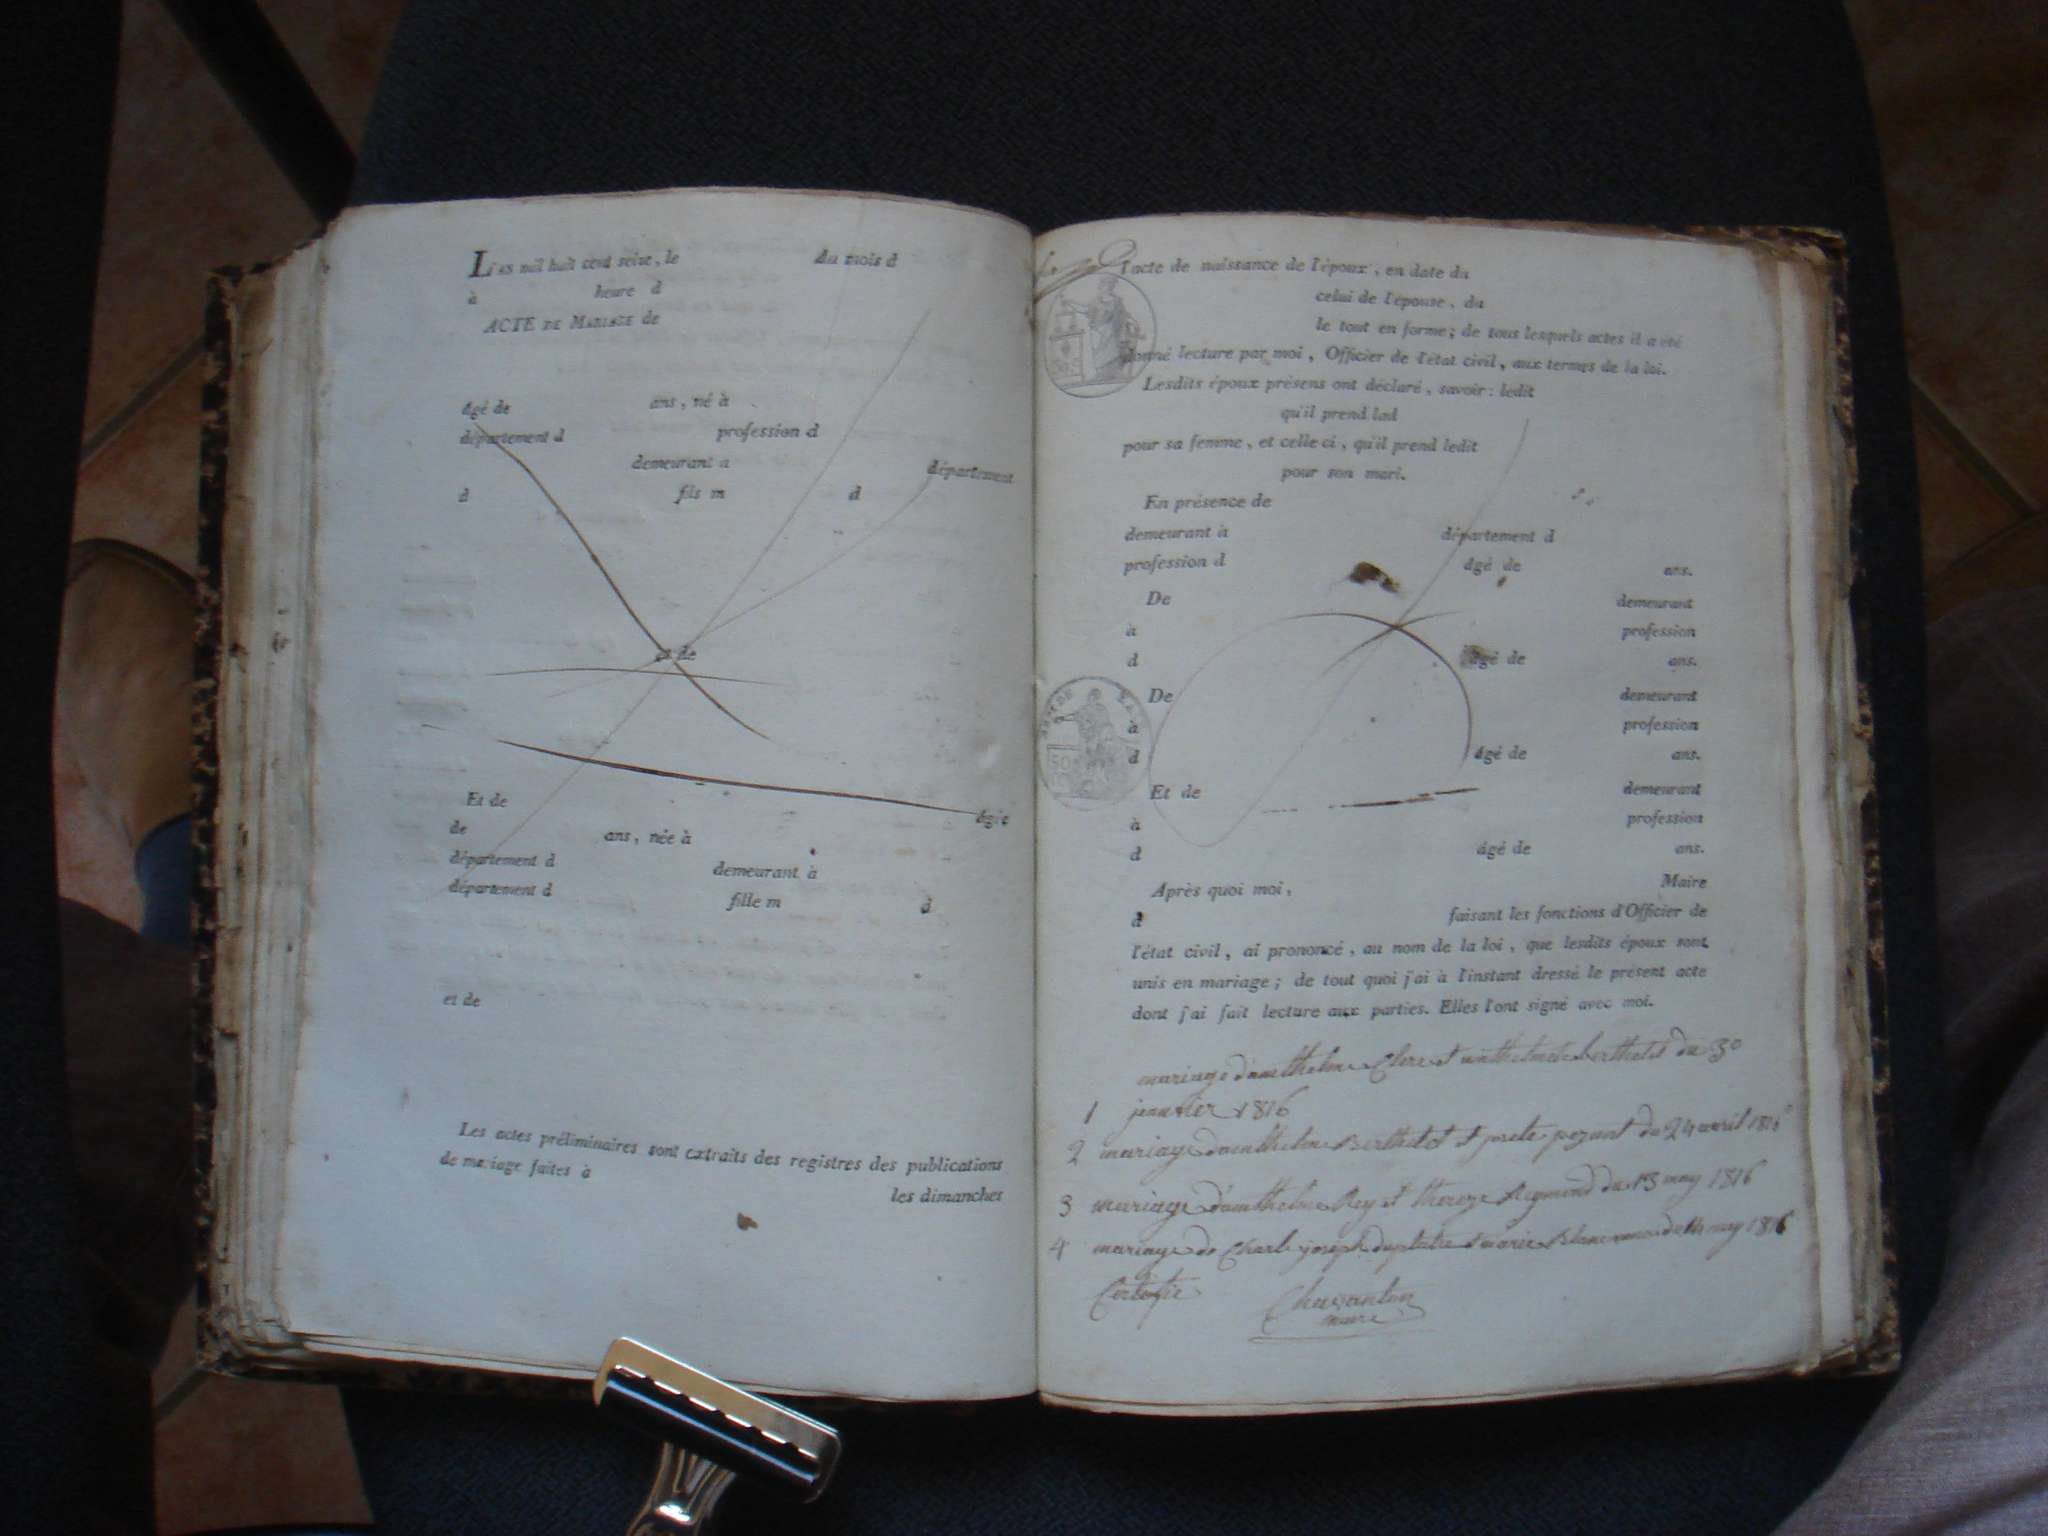 L'an mil huit cent seize, le Du mois d
à heure d
ACTE DE MARIAGE de
âgé de ans, né à
département d profession d
demeurant a département
d fils m d
et de
Et de âgée
de ans, née à
département d demeurant à
département d fille m d
et de
Les actes préliminaires sont extraits des registres des publications
de mariage faites à les dimanches
l'acte de naissance de l'époux, en date du
celui de l'épouse, du
le tout en forme; de tous lesquels actes il a été
donné lecture par moi, Officier de l'état civil, aux termes de la loi.
Lesdits époux présens ont déclaré, savoir: ledit
qu'il prend lad
pour sa femme, et celle ci, qu'il prend ledit
pour son mari.
En présence de
demeurant à département d
profession d âgé de ans.
De demeurant
à profession
d âgé de ans.
De demeurant
à profession
d âgé de ans.
Et de demeurant
à profession
d âgé de ans.
Après quoi moi, Maire
d faisant les fonctions d'Officier de
l'état civil, ai prononcé, au nom de la loi, que lesdits époux sont
unis en mariage; de tout quoi j'ai à l'instant dressé le présent acte
dont j'ai fait lecture aux parties. Elles l'ont signé avec moi.
mariage d'anthelme Clerc et anthelmette berthelet du 30
1 janvier 1816
2 mariage d'anthelme Berthelet et pezant du 24 avril 1816
3 mariage d'anthelme Rey et thereze Reymond du 13 may 1816
4 mariage de Charle joseph duplatre marie du 14 may 1816
maire
50